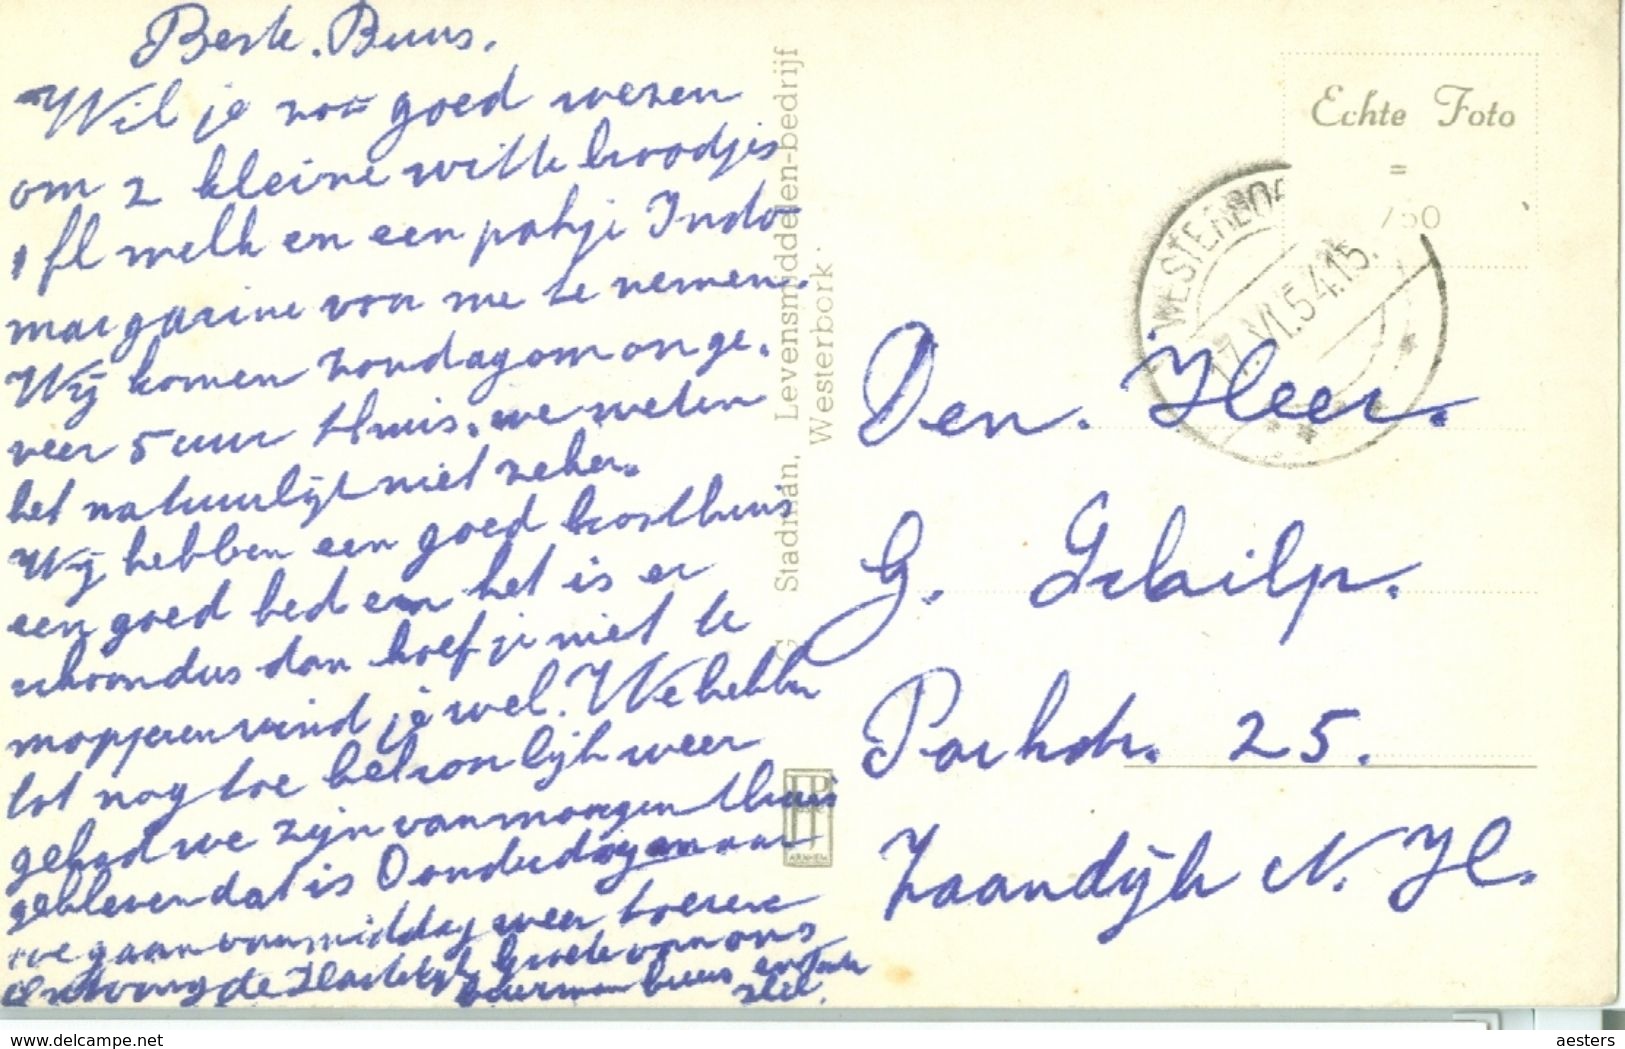 Beste. Buus.
Wil je zoo goed wezen
om 2 kleine witte broodjes
1 fl melk en een pakje Indo
margarine voor me te nemen.
Wij komen zondag om onge.
veer 5 uur thuis. we weten
het natuurlijk niet zeker.
Wij hebben een goed kosthuis
een goed bed en het is er
schoon dus dan hoef je niet te
mopperen vind je wel. We hebben
tot nog toe behoorlijk weer
gehad we zijn vanmorgen thuis
gebleven dat is Donderdag maar
we gaan vanmiddag weer toeren
Ontvang de Hartelijk Groete van ons
buurman buus en Tante
G Stadman, Levensmiddelen-bedrijf
Westerbork
HPT
ARNHEM
Echte Foto
=
750
WESTERBOR
17.VI.54.15.
Den. Heer.
G. Schilp.
Parkstr. 25.
Zaandijk N. H.
delcampe.net
aesters